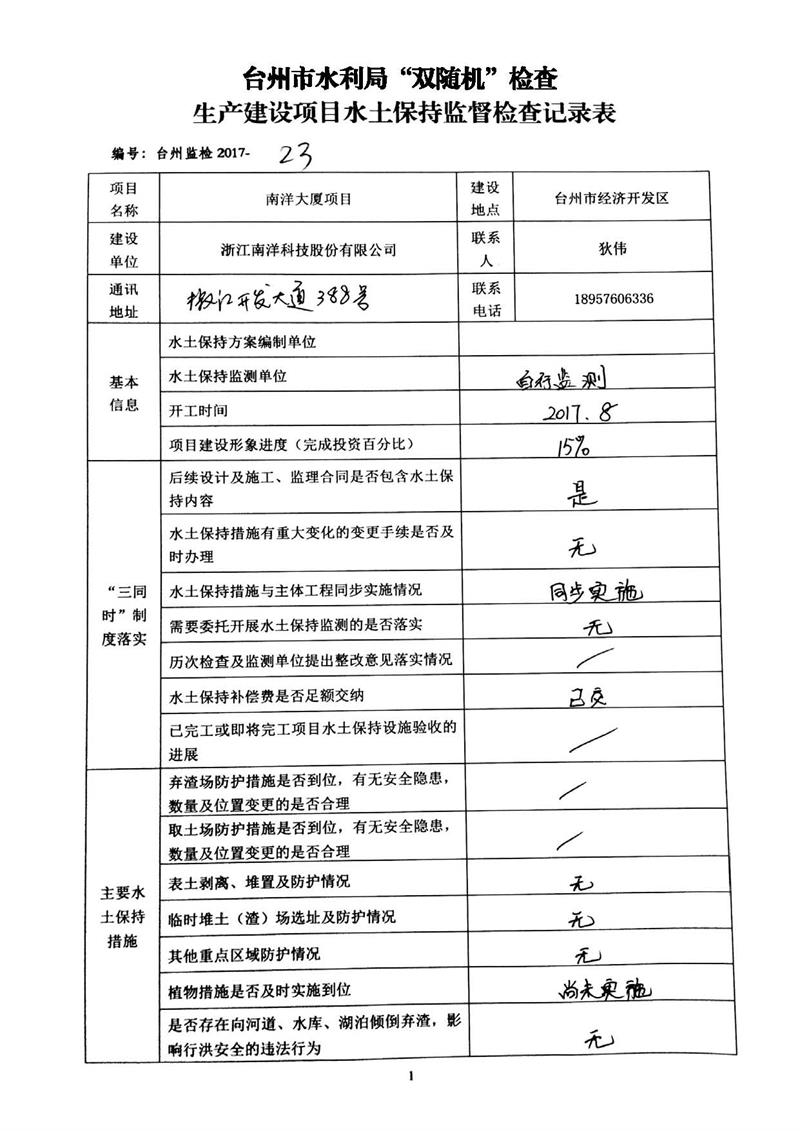 台州市水利局“双随机”检查
生产建设项目水土保持监督检查记录表
编号：台州监检 2017- 23
项目
名称
南洋大厦项目
建设
地点
台州市经济开发区
建设
单位
浙江南洋科技股份有限公司
联系
人
狄伟
通讯
地址
椒江开发大道388号
联系
电话
18957606336
基本
信息
水土保持方案编制单位
水土保持监测单位
自行监测
开工时间
2017.8
项目建设形象进度（完成投资百分比）
15%
“三同
时”制
度落实
后续设计及施工、监理合同是否包含水土保
持内容
是
水土保持措施有重大变化的变更手续是否及
时办理
无
水土保持措施与主体工程同步实施情况
同步实施
需要委托开展水土保持监测的是否落实
无
历次检查及监测单位提出整改意见落实情况
/
水土保持补偿费是否足额交纳
已交
已完工或即将完工项目水土保持设施验收的
进展
/
主要水
土保持
措施
弃渣场防护措施是否到位，有无安全隐患，
数量及位置变更的是否合理
/
取土场防护措施是否到位，有无安全隐患，
数量及位置变更的是否合理
/
表土剥离、堆置及防护情况
无
临时堆土（渣）场选址及防护情况
无
其他重点区域防护情况
无
植物措施是否及时实施到位
尚未实施
是否存在向河道、水库、湖泊倾倒弃渣，影
响行洪安全的违法行为
无
1